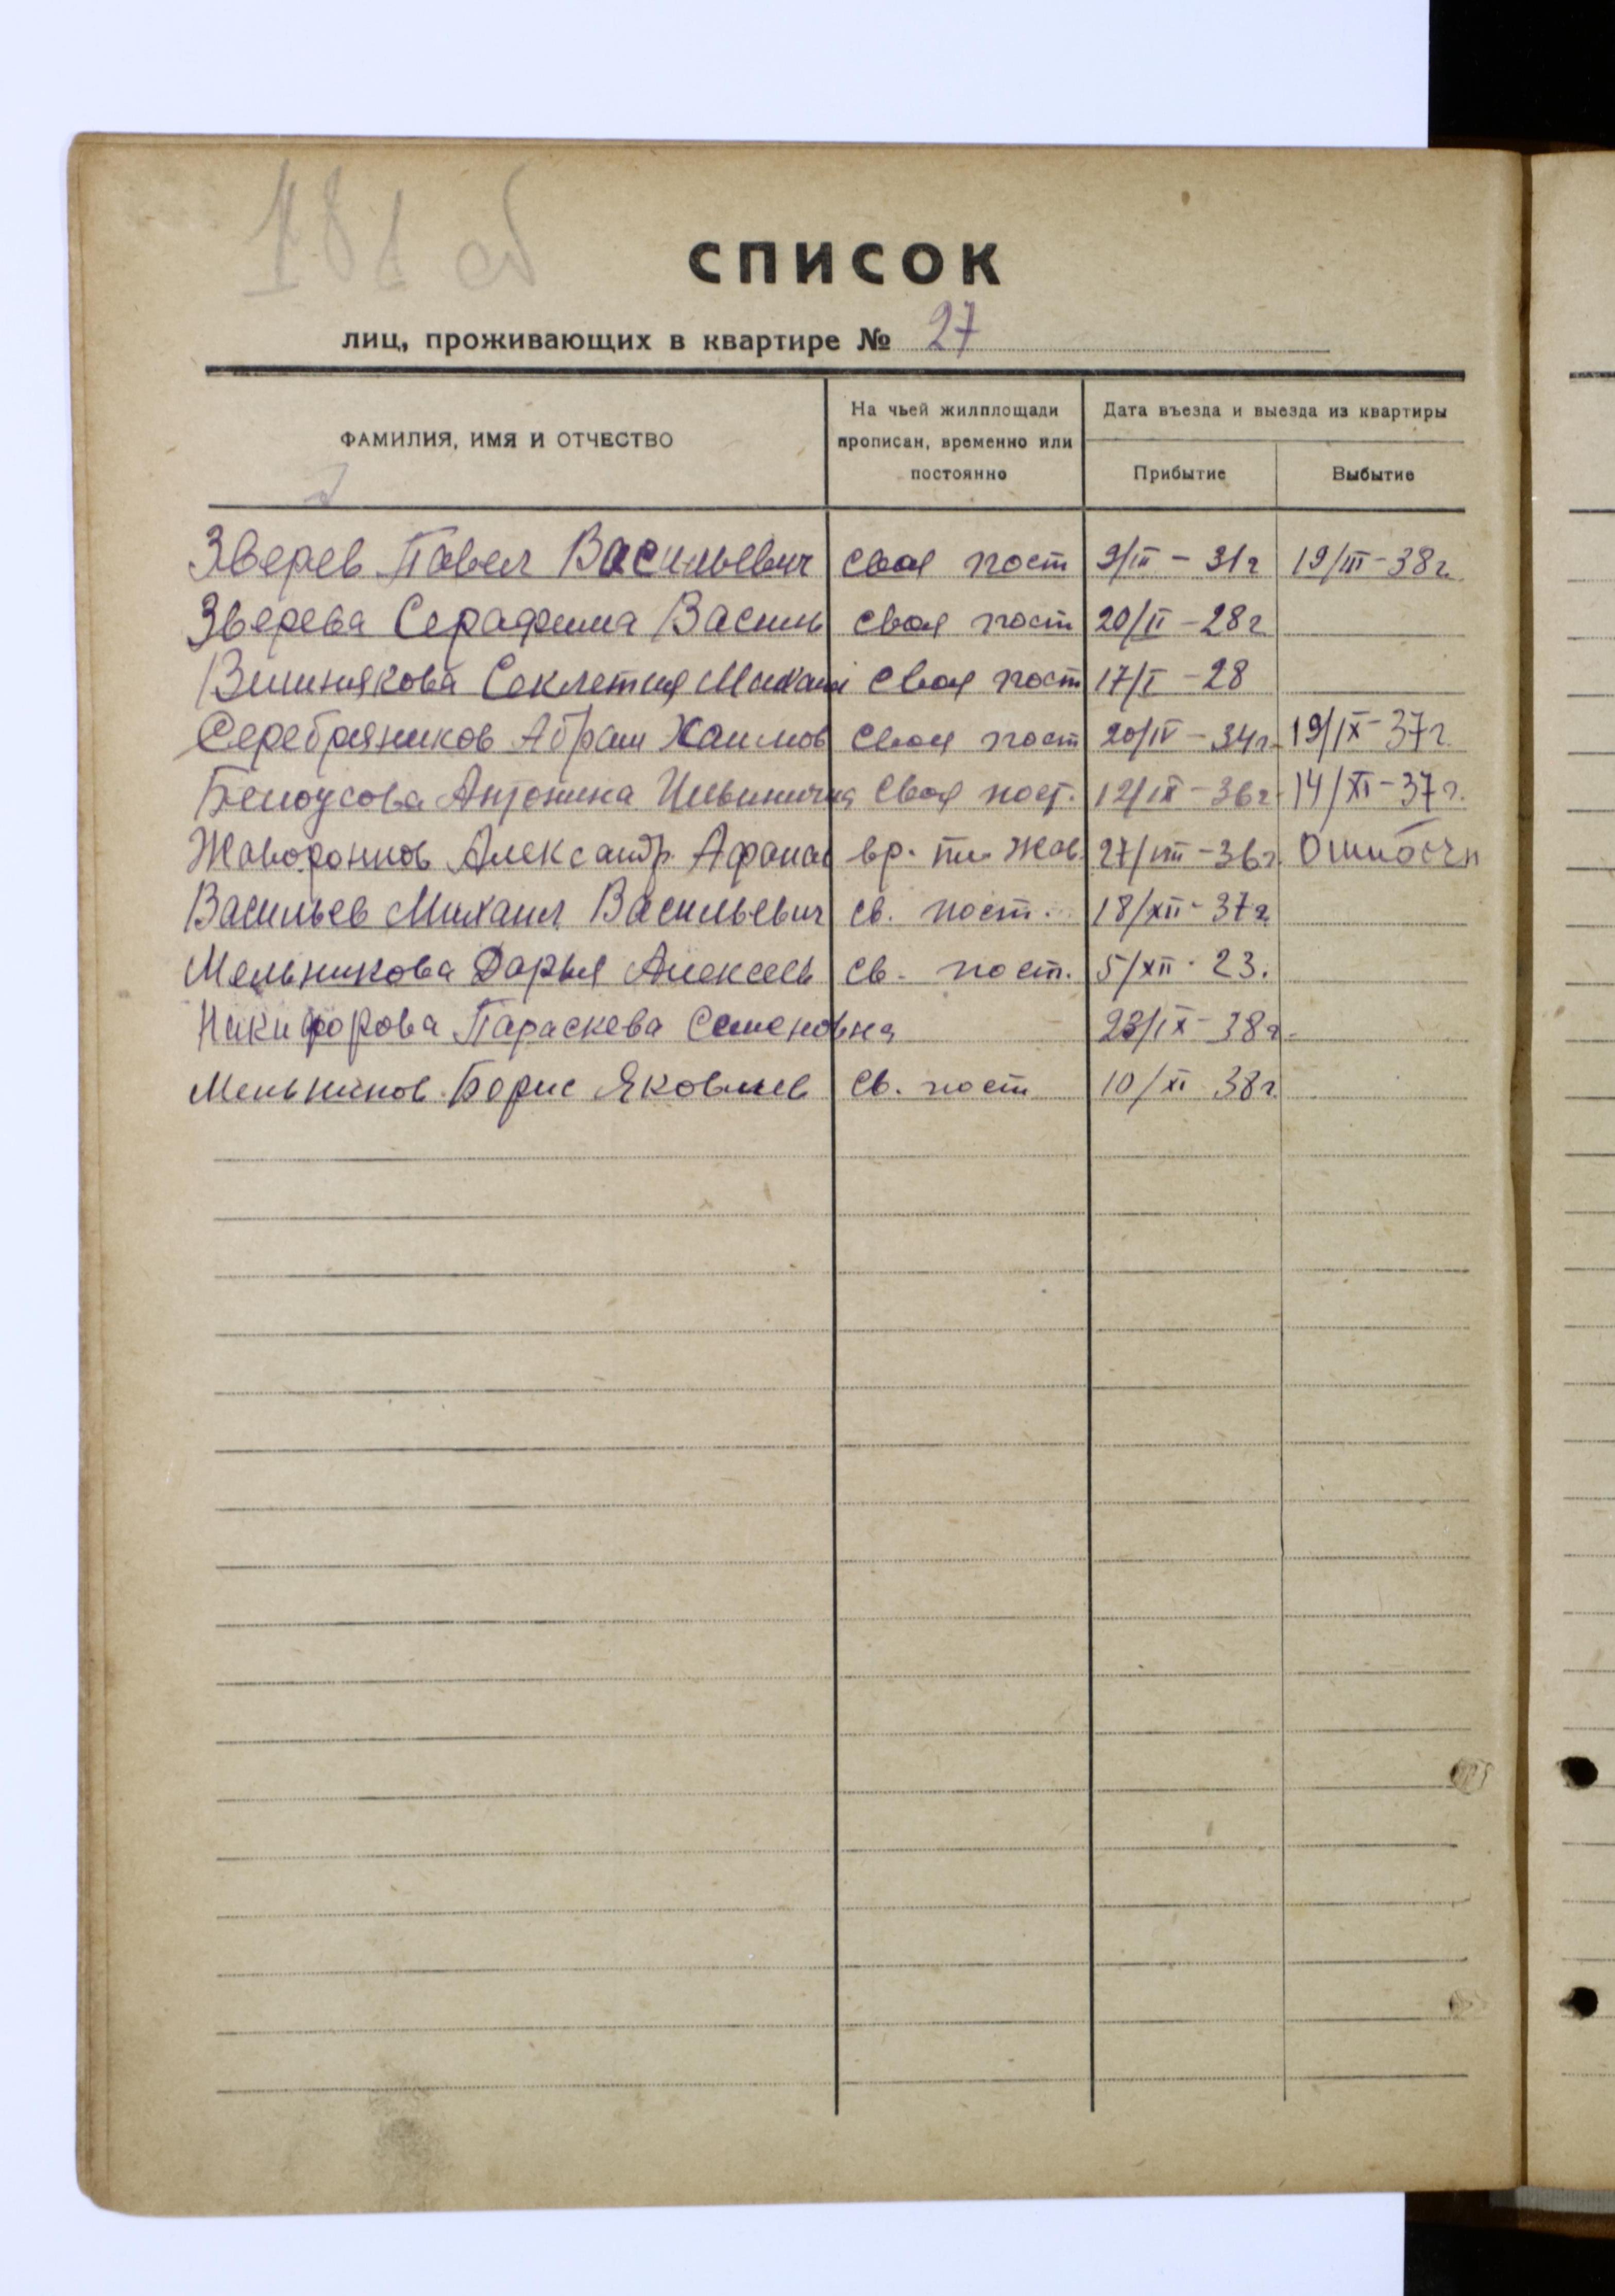 181 об
СПИСОК
лиц, проживающих в квартире № 27
ФАМИЛИЯ, ИМЯ И ОТЧЕСТВО
На чьей жилплощади прописан, временно или постоянно
Дата въезда и выезда из квартиры
Прибытие Выбытие
Зверев Павел Васильевич свая пост 9/III - 31г 19/III-38г.
Зверева Серафима Василь свая пост 20/II - 28г
Вишнякова Секлетия Михаил свая пост 17/I - 28
Серебряников Абрам Хаимов свая пост 20/IV - 34г. 19/IX-37г.
Белоусова Антонина Ильинична свая пост. 12/IX-36г. 14/XI-37г.
Жаворонков Александр Афанас вр. пл Жав. 27/VIII-36г. Ошибочн
Васильев Михаил Васильевич св. пост. 18/XII-37г.
Мельникова Дарья Алексеев св. пост. 5/XII-23.
Никифорова Параскева Семеновна 23/IX-38г.
Мельников Борис Яковлев св. пост 10/XI 38г.